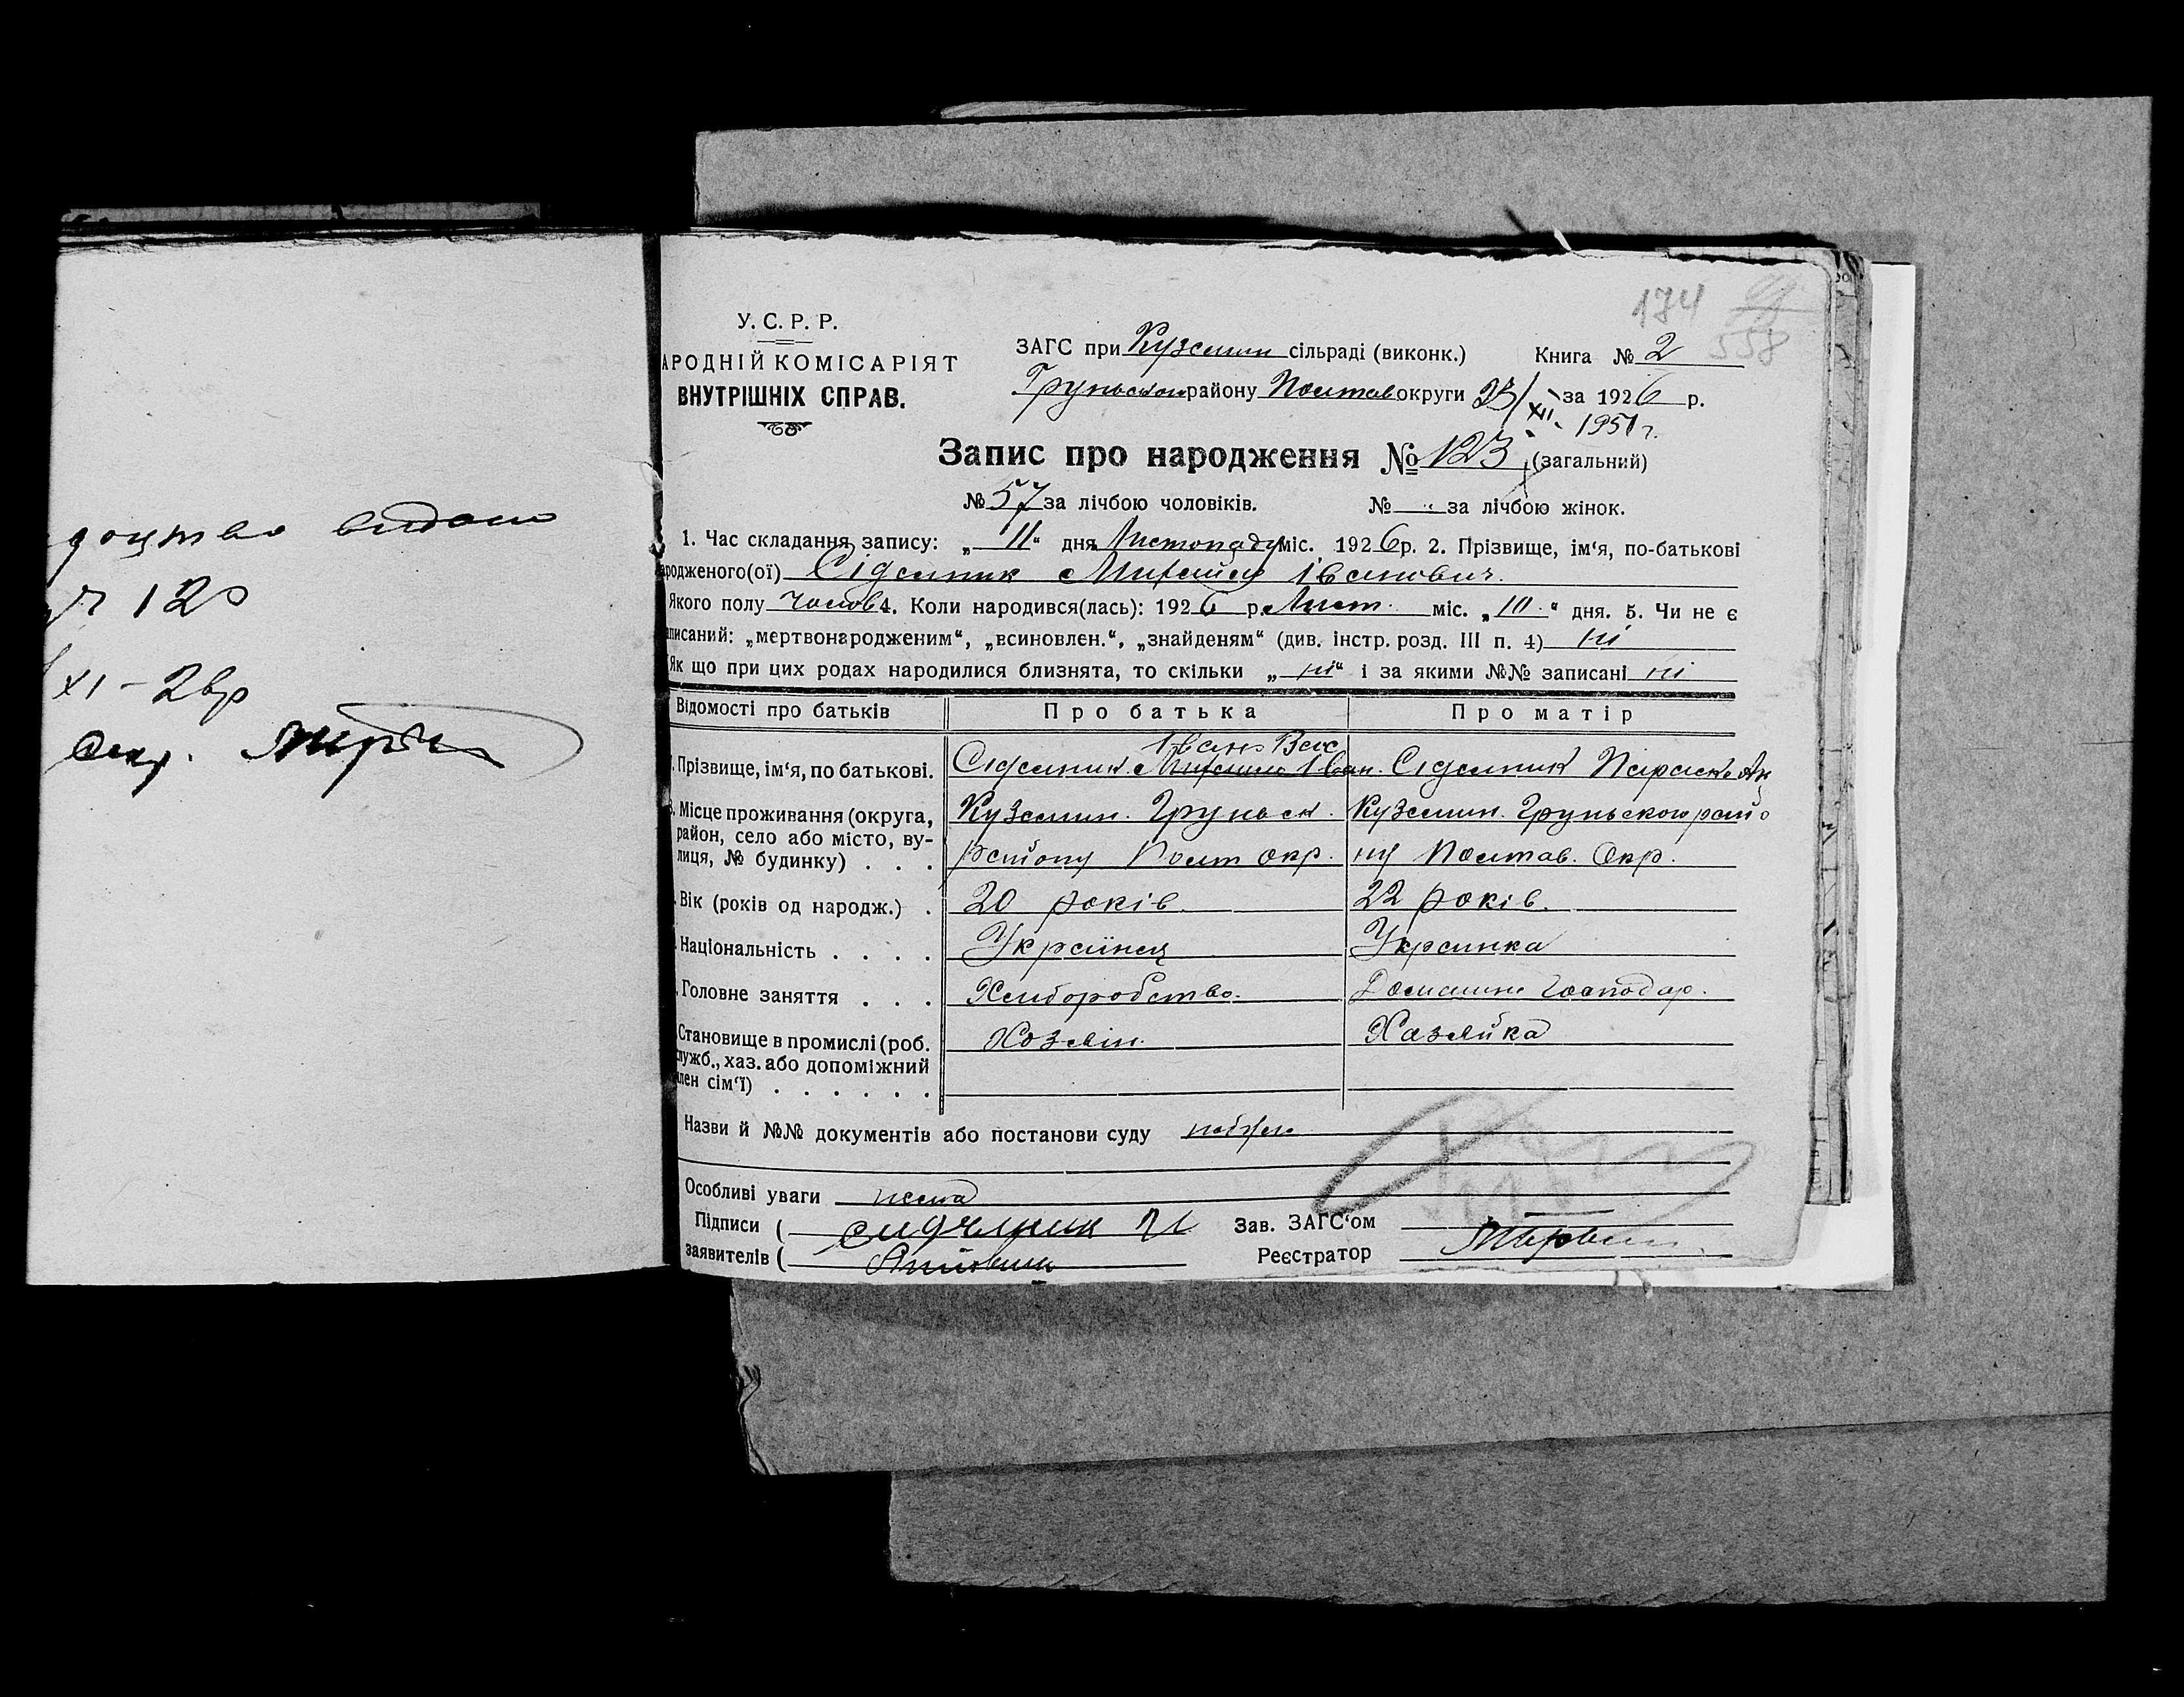 доцтво видано
№ 120
XI – 26 р
Секр.
174
558
У. С. Р. Р.
АРОДНІЙ КОМІСАРІЯТ
ВНУТРІШНІХ СПРАВ.
ЗАГС при Куземин сільраді (виконк.) Книга № 2
Груньском району Полтав округи за 1926 р.
23/XII 1951 г.
Запис про народження № 123 (загальний)
№ 57 за лічбою чоловіків. № " за лічбою жінок.
1. Час складання запису: „ 11 “ дня Листопаду міс. 1926 р. 2. Прізвище, ім‘я, по-батькові
ародженого(ої) Сідельник Михайло Іванович.
Якого полу чолов 4. Коли народився(лась): 1926 р. Лист. міс. „ 10 “ дня. 5. Чи не є
аписаний: „мертвонародженим“, „всиновлен.“, „знайденям“ (див. інстр. розд. III п. 4) ні
Як що при цих родах народилися близнята, то скільки „ ні “ і за якими №№ записані ні
Відомості про батьків Про батька Про матір
Іван Вас
Прізвище, ім‘я, по батькові. Сідельник Михайло Іван. Сідельник Параска
Місце проживання (округа, Куземин. Груньск. Куземин. Груньского райо
район, село або місто, ву- району Полт окр. ну Полтав. Окр.
лиця, № будинку) . . .
Вік (років од народж.) . 20 років. 22 років.
Національність . . . . Українец Українка
Головне заняття . . . Хлиборобство. Домашнє господар.
Становище в промислі (роб. Хозяін. Хазяйка
лужб., хаз. або допоміжний
лен сім‘ї) . . . . . .
Назви й №№ документів або постанови суду
Особливі уваги нема
Підписи ( Зав. ЗАГС‘ом
заявителів ( Реєстратор